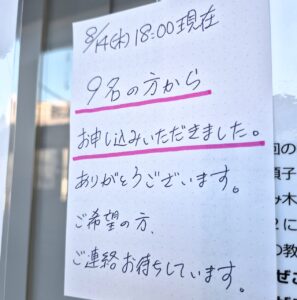 8/14(水)18:00現在
9名の方から
お申し込みいただきました。
ありがとうございます。
ご希望の方、
ご連絡お待ちしています。
回の
真子
み木
2に
の教
ぜひ